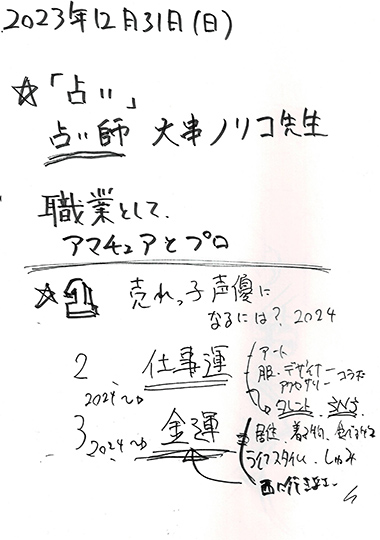 2023年12月31日(日)
☆「占い」
占い師 大串ノリコ先生
職業として、
アマチュアとプロ
☆1 売れっ子声優に
なるには? 2024
2、仕事運
2024〜
アート
服・デザイナー コラボ
アクセサリー
タレント、SNS
3 2024〜 金運
着る物、食べる物
ライフスタイル、しゅみ
西に行き